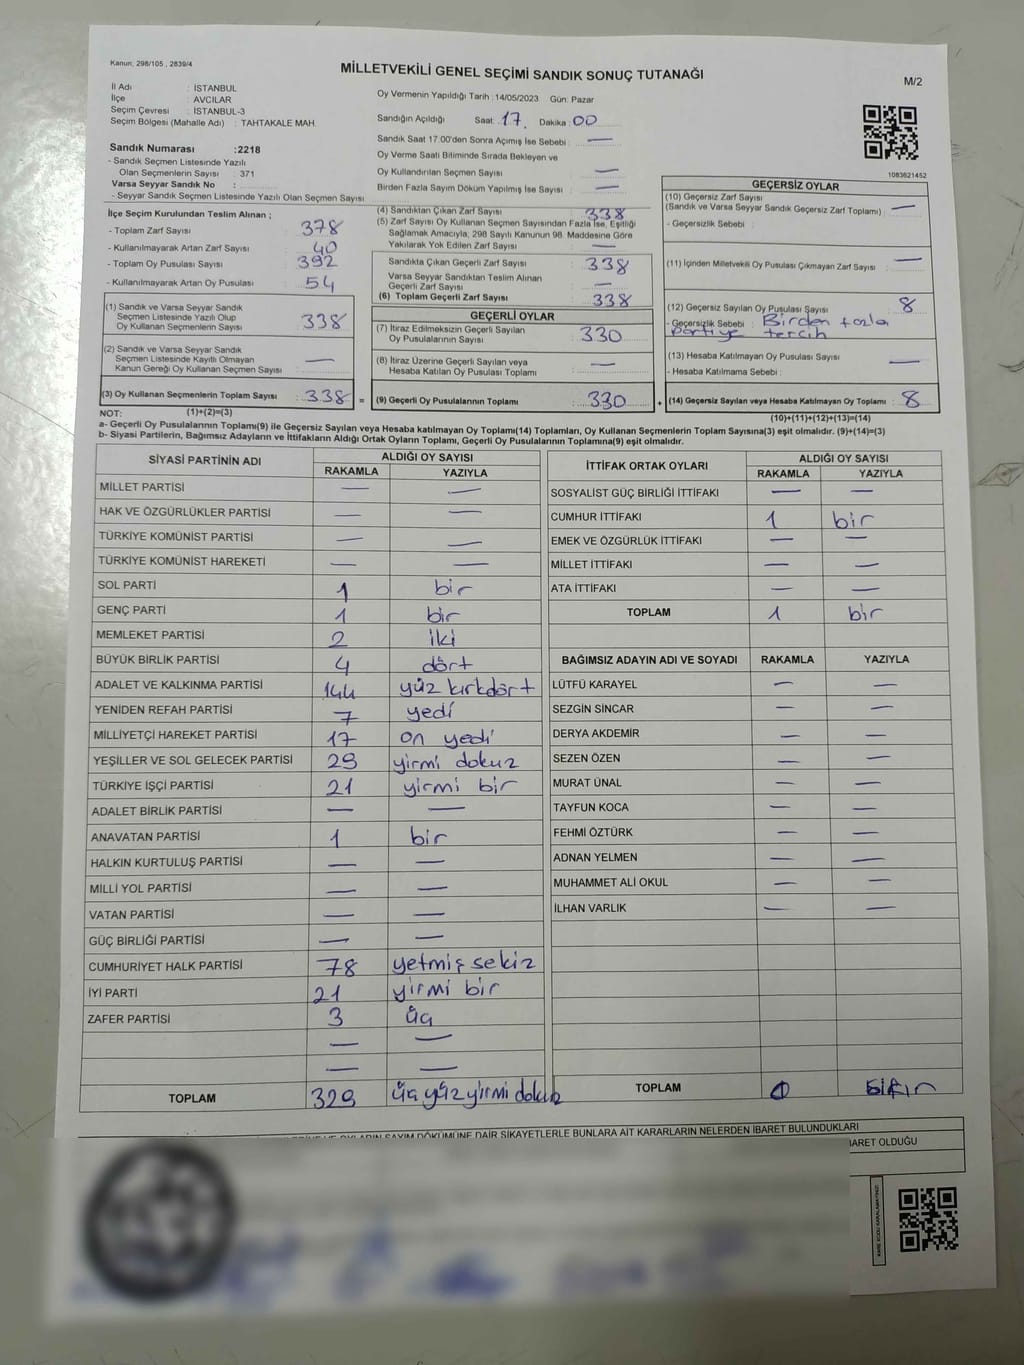 Kanun; 298/105 , 2839/4
MİLLETVEKİLİ GENEL SEÇİMİ SANDIK SONUÇ TUTANAĞI
M/2
İl Adı : İSTANBUL
İlçe : AVCILAR
Seçim Çevresi : İSTANBUL-3
Seçim Bölgesi (Mahalle Adı) : TAHTAKALE MAH.
Oy Vermenin Yapıldığı Tarih :14/05/2023 Gün: Pazar
Sandığın Açıldığı Saat: 17. Dakika: 00
Sandık Saat 17:00'den Sonra Açılmış İse Sebebi : —
Oy Verme Saati Bitiminde Sırada Bekleyen ve
Oy Kullandırılan Seçmen Sayısı : —
Birden Fazla Sayım Döküm Yapılmış İse Sayısı : —
Sandık Numarası :2218
- Sandık Seçmen Listesinde Yazılı
Olan Seçmenlerin Sayısı : 371
Varsa Seyyar Sandık No :
- Seyyar Sandık Seçmen Listesinde Yazılı Olan Seçmen Sayısı
1083621452
İlçe Seçim Kurulundan Teslim Alınan ;
- Toplam Zarf Sayısı : 378
- Kullanılmayarak Artan Zarf Sayısı : 40
- Toplam Oy Pusulası Sayısı : 392
- Kullanılmayarak Artan Oy Pusulası : 54
(1) Sandık ve Varsa Seyyar Sandık
Seçmen Listesinde Yazılı Olup
Oy Kullanan Seçmenlerin Sayısı : 338
(2) Sandık ve Varsa Seyyar Sandık
Seçmen Listesinde Kayıtlı Olmayan
Kanun Gereği Oy Kullanan Seçmen Sayısı : —
(3) Oy Kullanan Seçmenlerin Toplam Sayısı : 338 =
(4) Sandıktan Çıkan Zarf Sayısı : 338
(5) Zarf Sayısı Oy Kullanan Seçmen Sayısından Fazla İse, Eşitliği
Sağlamak Amacıyla, 298 Sayılı Kanunun 98. Maddesine Göre
Yakılarak Yok Edilen Zarf Sayısı : —
Sandıkta Çıkan Geçerli Zarf Sayısı : 338
Varsa Seyyar Sandıktan Teslim Alınan
Geçerli Zarf Sayısı : —
(6) Toplam Geçerli Zarf Sayısı : 338
GEÇERLİ OYLAR
(7) İtiraz Edilmeksizin Geçerli Sayılan
Oy Pusulalarının Sayısı : 330
(8) İtiraz Üzerine Geçerli Sayılan veya
Hesaba Katılan Oy Pusulası Toplamı : —
(9) Geçerli Oy Pusulalarının Toplamı : 330 +
GEÇERSİZ OYLAR
(10) Geçersiz Zarf Sayısı
(Sandık ve Varsa Seyyar Sandık Geçersiz Zarf Toplamı) : —
- Geçersizlik Sebebi :
(11) İçinden Milletvekili Oy Pusulası Çıkmayan Zarf Sayısı : —
(12) Geçersiz Sayılan Oy Pusulası Sayısı : 8
- Geçersizlik Sebebi : Birden fazla
partiye tercih
(13) Hesaba Katılmayan Oy Pusulası Sayısı : —
- Hesaba Katılmama Sebebi :
(14) Geçersiz Sayılan veya Hesaba Katılmayan Oy Toplamı : 8
NOT: (1)+(2)=(3)
(10)+(11)+(12)+(13)=(14)
a- Geçerli Oy Pusulalarının Toplamı(9) ile Geçersiz Sayılan veya Hesaba katılmayan Oy Toplamı(14) Toplamları, Oy Kullanan Seçmenlerin Toplam Sayısına(3) eşit olmalıdır. (9)+(14)=(3)
b- Siyasi Partilerin, Bağımsız Adayların ve İttifakların Aldığı Ortak Oyların Toplamı, Geçerli Oy Pusulalarının Toplamına(9) eşit olmalıdır.
SİYASİ PARTİNİN ADI ALDIĞI OY SAYISI
RAKAMLA YAZIYLA
MİLLET PARTİSİ — —
HAK VE ÖZGÜRLÜKLER PARTİSİ — —
TÜRKİYE KOMÜNİST PARTİSİ — —
TÜRKİYE KOMÜNİST HAREKETİ — —
SOL PARTİ 1 bir
GENÇ PARTİ 1 bir
MEMLEKET PARTİSİ 2 iki
BÜYÜK BİRLİK PARTİSİ 4 dört
ADALET VE KALKINMA PARTİSİ 144 yüz kırkdört
YENİDEN REFAH PARTİSİ 7 yedi
MİLLİYETÇİ HAREKET PARTİSİ 17 on yedi
YEŞİLLER VE SOL GELECEK PARTİSİ 29 yirmi dokuz
TÜRKİYE İŞÇİ PARTİSİ 21 yirmi bir
ADALET BİRLİK PARTİSİ — —
ANAVATAN PARTİSİ 1 bir
HALKIN KURTULUŞ PARTİSİ — —
MİLLİ YOL PARTİSİ — —
VATAN PARTİSİ — —
GÜÇ BİRLİĞİ PARTİSİ — —
CUMHURİYET HALK PARTİSİ 78 yetmiş sekiz
İYİ PARTİ 21 yirmi bir
ZAFER PARTİSİ 3 üç
— —
— —
TOPLAM 329 üç yüz yirmi dokuz
İTTİFAK ORTAK OYLARI ALDIĞI OY SAYISI
RAKAMLA YAZIYLA
SOSYALİST GÜÇ BİRLİĞİ İTTİFAKI — —
CUMHUR İTTİFAKI 1 bir
EMEK VE ÖZGÜRLÜK İTTİFAKI — —
MİLLET İTTİFAKI — —
ATA İTTİFAKI — —
TOPLAM 1 bir
BAĞIMSIZ ADAYIN ADI VE SOYADI RAKAMLA YAZIYLA
LÜTFÜ KARAYEL — —
SEZGİN SİNCAR — —
DERYA AKDEMİR — —
SEZEN ÖZEN — —
MURAT ÜNAL — —
TAYFUN KOCA — —
FEHMİ ÖZTÜRK — —
ADNAN YELMEN — —
MUHAMMET ALİ OKUL — —
İLHAN VARLIK — —
TOPLAM 0 sıfır
OYLARIN SAYIM DÖKÜMÜNE DAİR ŞİKAYETLERLE BUNLARA AİT KARARLARIN NELERDEN İBARET BULUNDUKLARI
İBARET OLDUĞU
KARE KODU KARALAMAYINIZ!